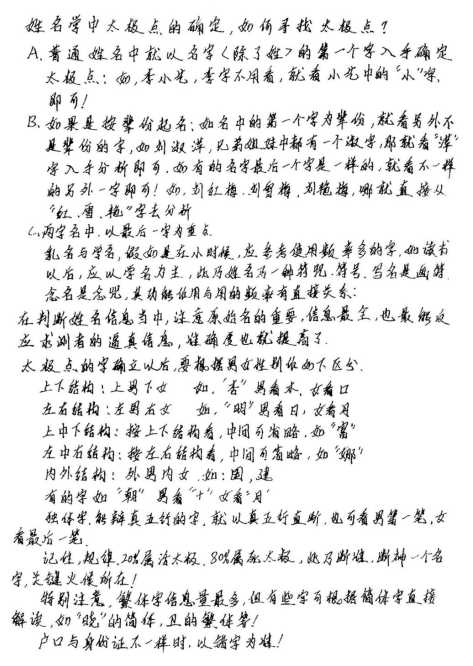 姓名学中太极点的确定,如何寻找太极点?
A、普通姓名中就以名字(除了姓)的第一个字入手确定
太极点:如,李小光,李字不用看,就看小光中的"小"字,
即可!
B、如果是按辈份起名:如名中的第一个字为辈份,就看另外不
是辈份的字,如刘淑洋,兄弟姐妹中都有一个淑字,那就看"洋"
字入手分析即可,如有的名字最后一个字是一样的,就看不一样
的另外一字即可!如,刘红梅、刘雪梅、刘艳梅,哪就直接从
"红、雪、艳"字去分析
C、两字名中,以最后一字为重点.
乳名与学名,假如是在小时候,应参考使用频率多的字,如读书
以后,应以学名为主,此乃姓名乃一种符咒.符号.写名是画符.
念名是念咒,其功能作用与用的频率有直接关系:
在判断姓名信息当中,注意原始名的重要,信息最全,也最能反
应求测者的通真信度,准确度也就提高了.
太极点的字确立以后,要根据男女性别作如下区分.
上下结构:上男下女 如,"杏"男看木、女看口
左右结构:左男右女 如,"明"男看日,女看月
上中下结构:按上下结构看,中间可省略.如"富"
左中右结构:按左右结构看,中间可省略,如"娜"
内外结构:外男内女.如:国,建
有的字如"朝"男看"十"女看"月"
独体字,能辩真五行的字,就以真五行直断,也可看男第一笔,女
看最后一笔.
记住,规律.20%属活太极.80%属死太极,此乃断准,断神一个名
字,关键火候所在!
特别注意,繁体字信息量最多,但有些字可根据简体字直接
解读,如"晚"的简体,且的繁体等!
户口与身份证不一样时.以错字为准!